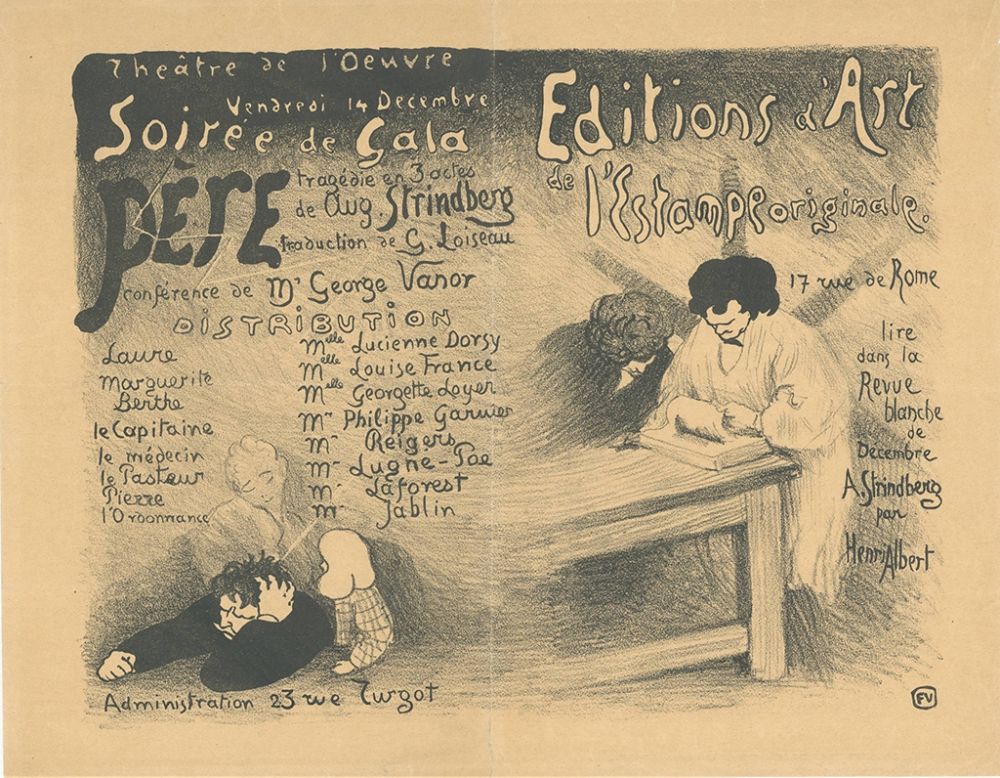 Theâtre de l'Oeuvre
Vendredi 14 Decembre
Soirée de Gala
PÈRE
tragédie en 3 actes
de Aug. Strindberg
traduction de G. Loiseau
conférence de Mr George Vanor
DISTRIBUTION
Laure
Marguerite
Berthe
le Capitaine
le médecin
le Pasteur
Pierre
l'Ordonnance
Melle Lucienne Dorsy
Melle Louise France
Melle Georgette Loyer
Mr Philippe Garnier
Mr Reigers
Mr Lugne-Poe
Mr Laforest
Mr Jablin
Administration 23 rue Turgot
Editions d'Art
de l'Estampe originale.
17 rue de Rome
lire
dans la
Revue
blanche
de
Décembre
A. Strindberg
par
Henri Albert
FV